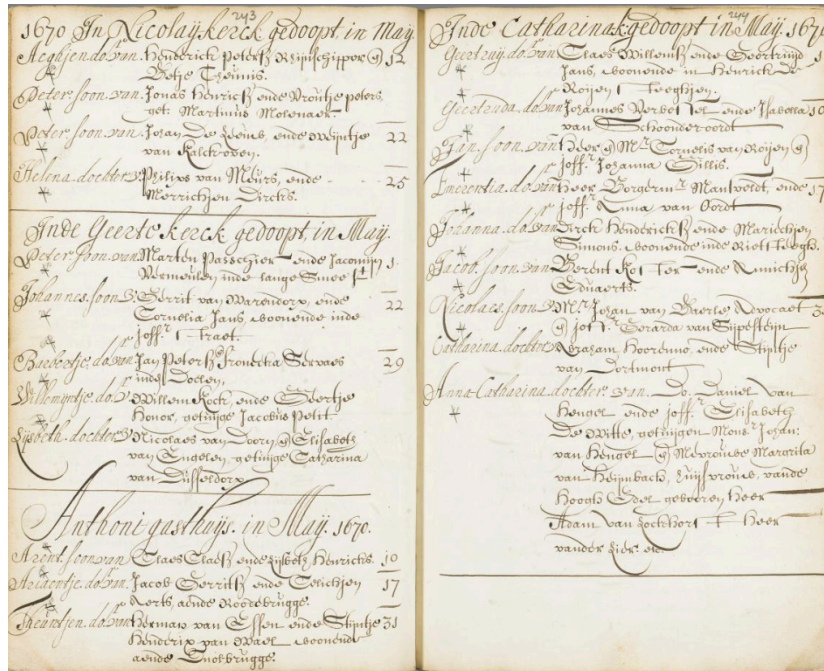 243
1670 In Nicolaij kerck gedoopt, in Maij
Aeghjen do. van Henderick Peters Rhijnschipper en 12
Peter soon van Jonas Henrics ende Vroutje peters,
get: Martinus Molenaer
Peter soon van Johan De Leeuw, ende Weijntje 22
van Kalckroven.
Helena dochter v. Philips van Meurs, ende 25
Merrichjen Dircks.
Inde Geerte kerck gedoopt, in Maij.
Peter soon van Marten Passchier ende Jacomijn 1
Vermeulen inde lange Smee st
Johannes soon v. Gerrit van Warendorp, ende 22
Cornelia Jans, woonende inde
joff.r straet.
Barbertje do. van Jan Peters 29
inde Doelen,
Willemijntje do. v. Willem Kock, ende Geertje
Honor, getuijge Jacobus Petit.
Lijsbeth dochter v. Nicolaes van Doorn en Elisabeth
van Engelen, getuijge Catharina
van Dusseldorp
Anthoni gasthuijs. in Maij. 1670.
Arent soon van Claes Claess ende Lijsbeth Henricks. 10
Ariaentje do. van Jacob Gerrits ende Celichjen 17
Aerts aende Roodebrugge.
Theuntjen do. van Herman van Essen ende Stijntje 31
Henderix van Wael woonende
aende
244
Inde Catharina k. gedoopt in Maij. 1670
Geertruij do. van Claes Willems ende Geertruijd 1
Jans, woonende in Henrick de
Roijen steeghjen.
Geertruda do. van Johannes ende Isabella 10
van Schoonderoordt
Jan soon van Heer en M.r Cornelis van Roijen en
joff.r Johanna Gillis.
Emerentia do. van Heer Borgerm.r Mantvoldt, ende 17
joff.r Anna van Oordt
Johanna do. van Dirck Henderickss ende Marichjen
Simons, woonende inde Rietsteegh.
Jacob soon van Berent Koster ende Annichje
Eduaerts.
Nicolaes soon v. M.r Johan van Baerle Advocaet
en joff.r Gerarda van Sijpesteijn
Catharina dochter v. Abraham ende Stijntje
van Dortmont
Anna Catharina dochter van Do. Daniel van
Hengel ende joff.r Elisabeth
De Witte, getuijgen Mons.r Johan
van Hengel en Mevrouwe Margrita
van Heijmbach, huijsvrouwe, vande
Hoogh Edel gebooren Heer
Adam van Lockhorst Heer
vander Lier. etc.